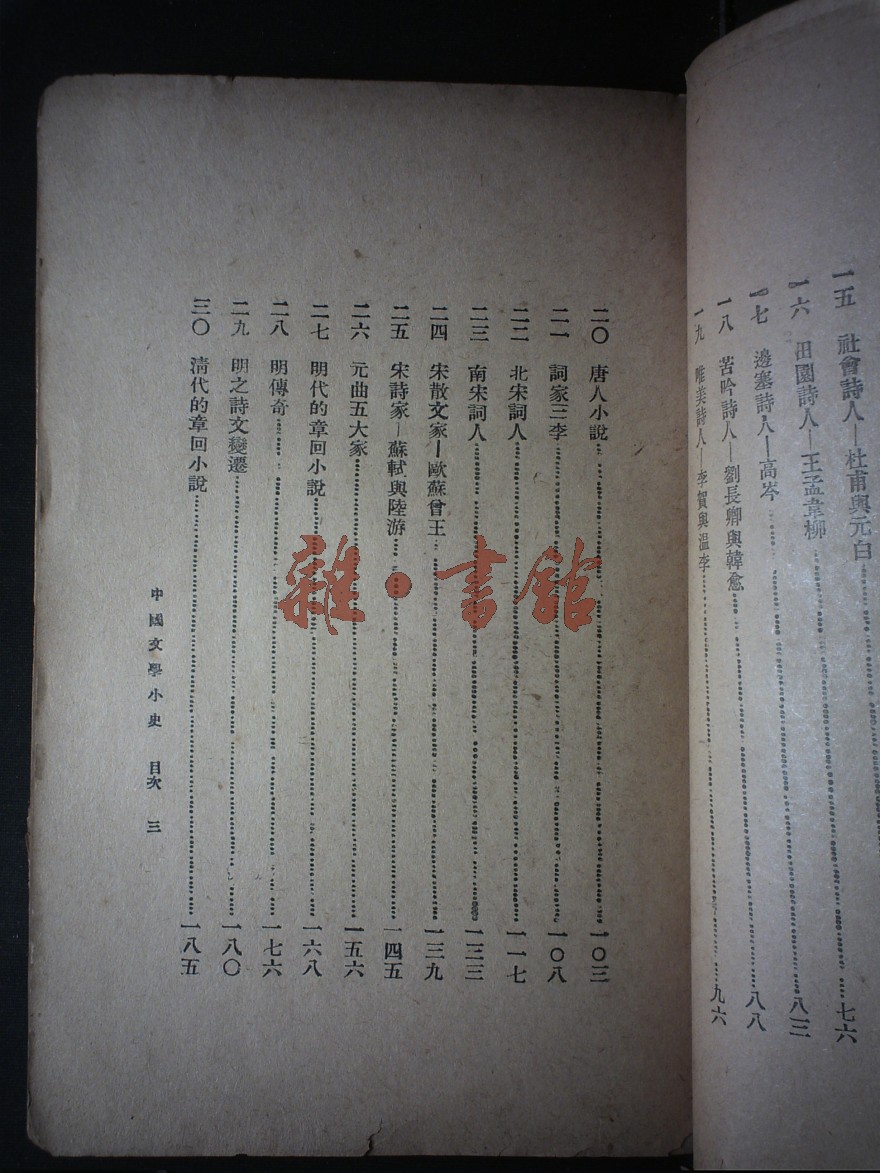 一五　社會詩人—杜甫與元白……七六
一六　田園詩人—王孟韋柳……八三
一七　邊塞詩人—高岑……八八
一八　苦吟詩人—劉長卿與韓愈
一九　唯美詩人—李賀與溫李……九六
二〇　唐人小說……一〇三
二一　詞家三李……一〇八
二二　北宋詞人……一一七
二三　南宋詞人……一三三
二四　宋散文家—歐蘇曾王……一三九
二五　宋詩家—蘇軾與陸游……一四五
二六　元曲五大家……一五六
二七　明代的章回小說……一六八
二八　明傳奇……一七六
二九　明之詩文變遷……一八〇
三〇　清代的章回小說……一八五
中國文學小史　目次　三
雜·書館